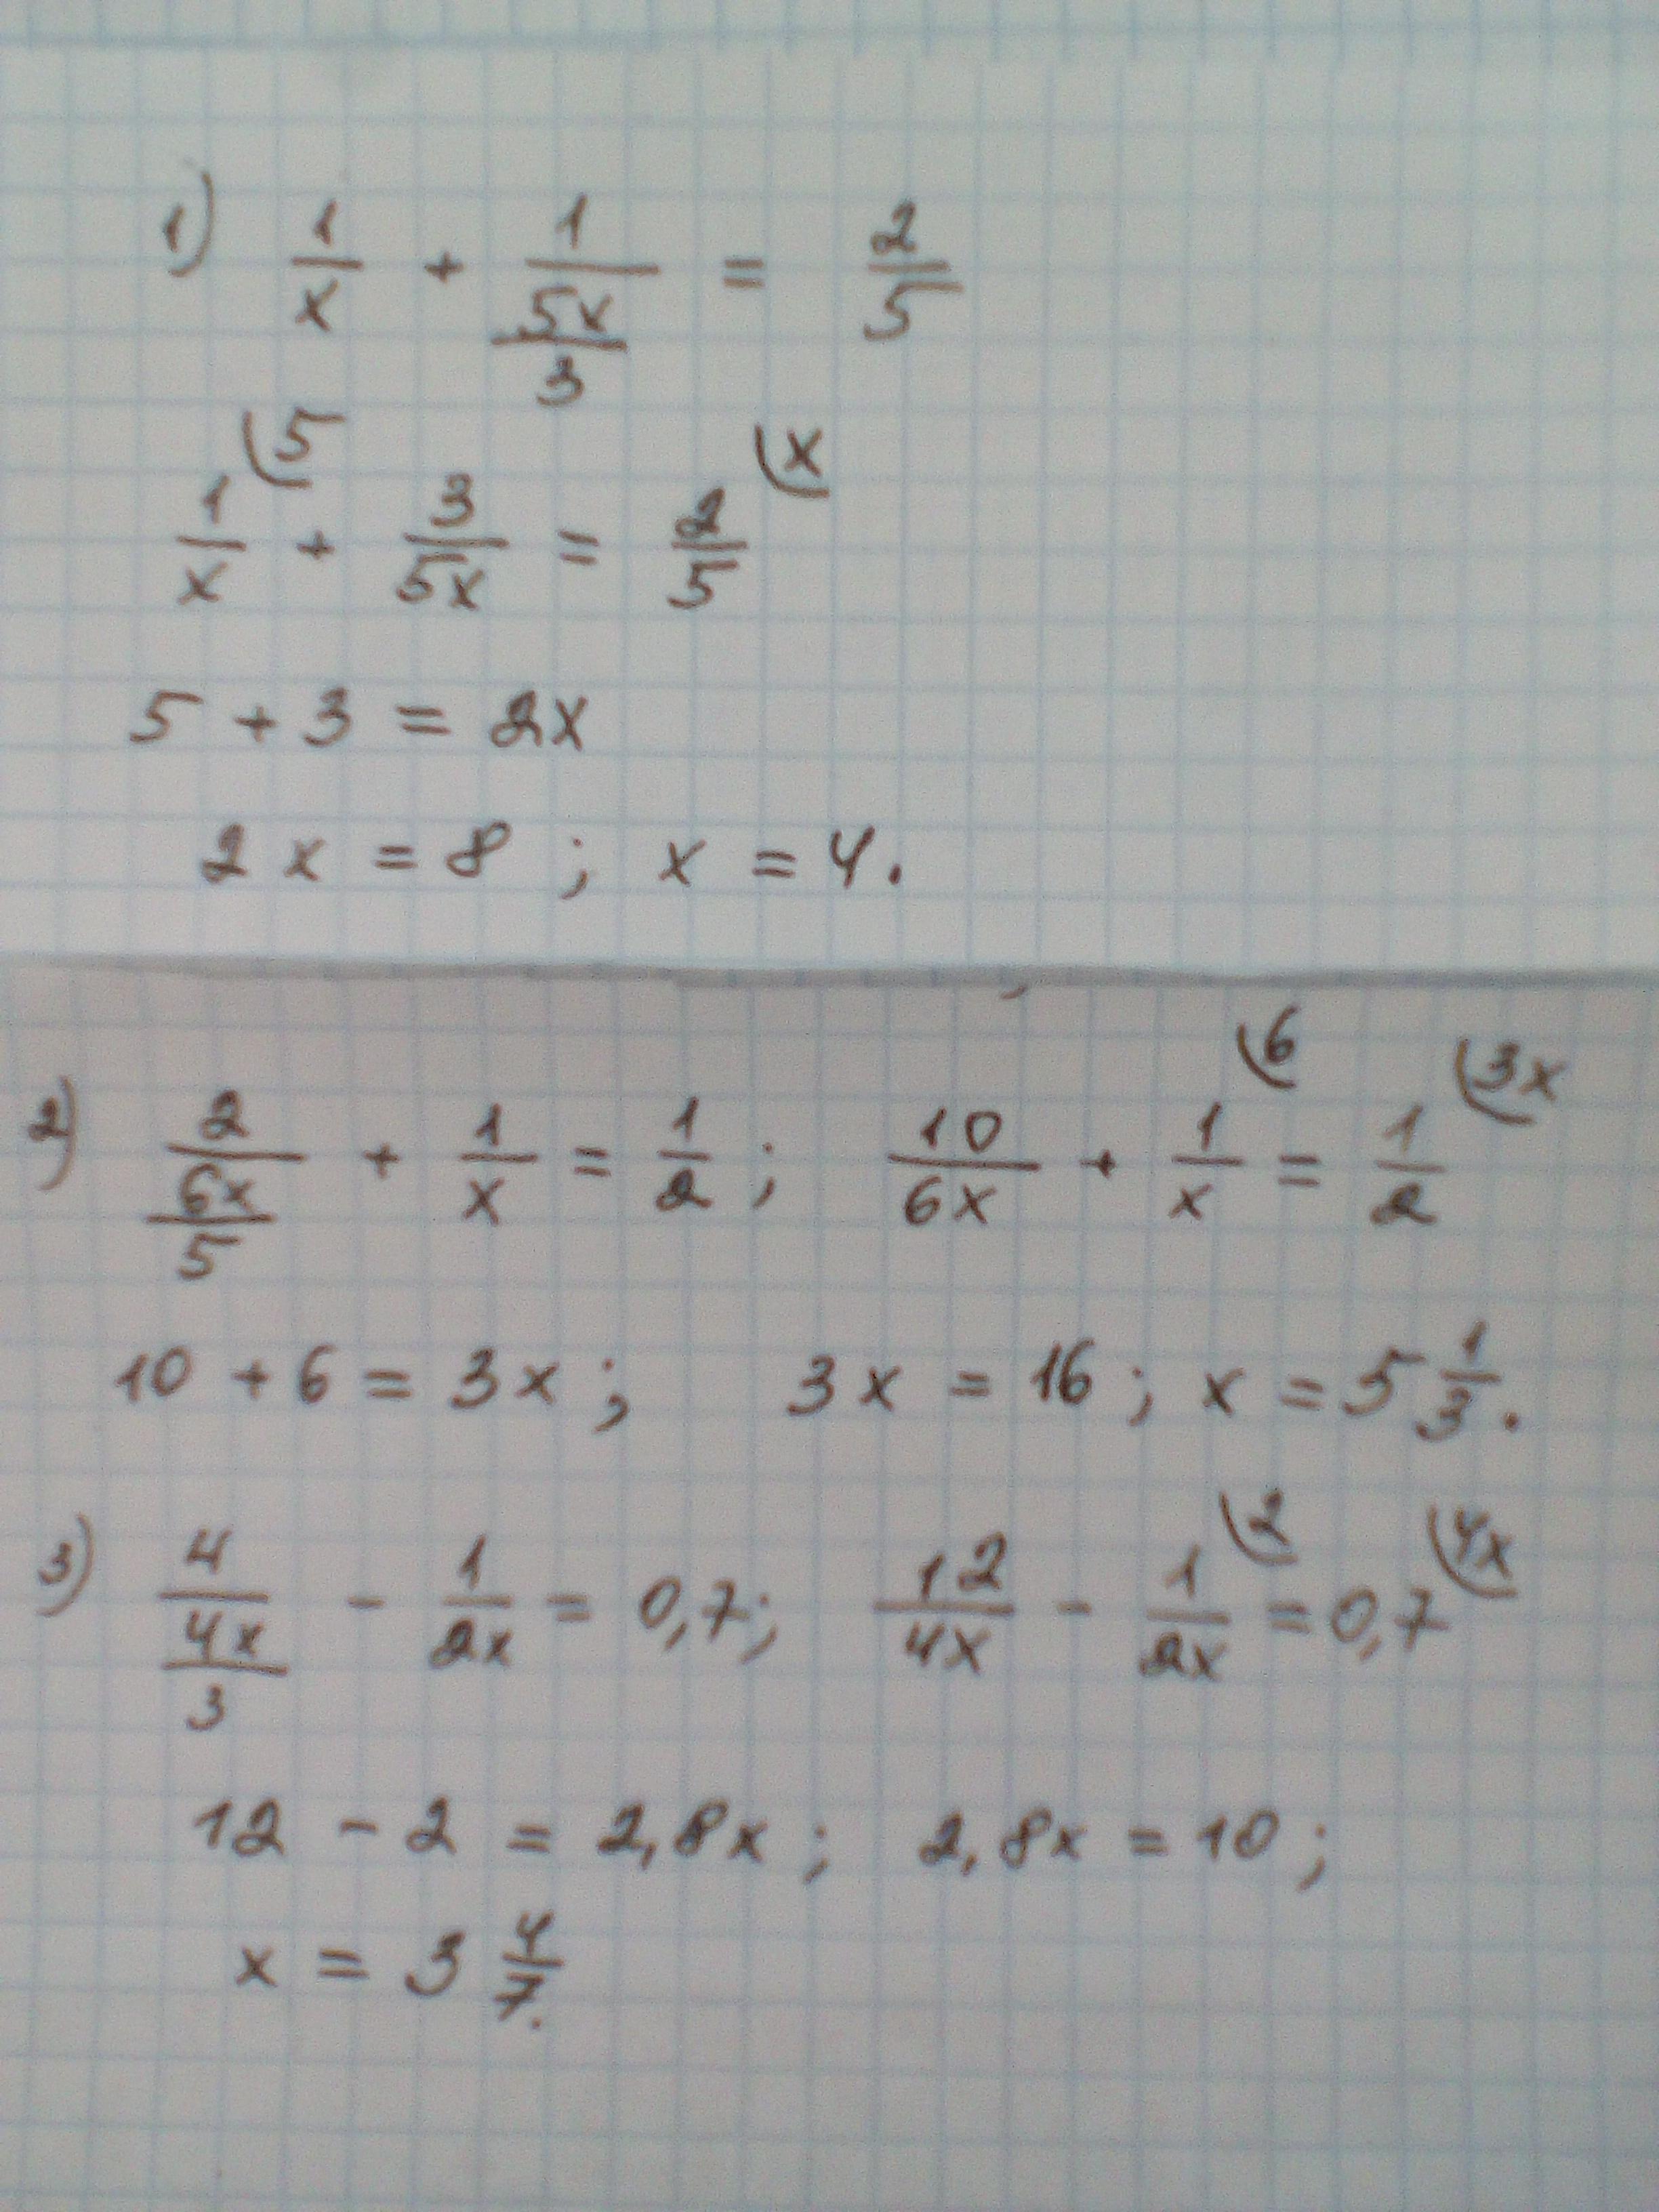 1) 1/x + 1/(5x/3) = 2/5
1/x (5 + 3/5x = 2/5 (x
5 + 3 = 2x
2x = 8 ; x = 4.
2) 2/(6x/5) + 1/x = 1/2 ; 10/6x + 1/x (6 = 1/2 (3x
10 + 6 = 3x ; 3x = 16 ; x = 5 1/3.
3) 4/(4x/3) - 1/2x = 0,7; 12/4x - 1/2x (2 = 0,7 (4x
12 - 2 = 2,8x ; 2,8x = 10 ;
x = 3 4/7.